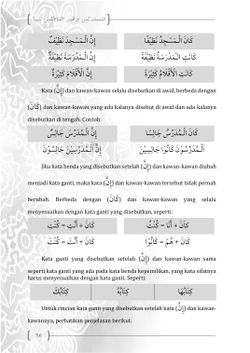 كَانَ الْمَسْجِدُ نَظِيْفًا
إِنَّ الْمَسْجِدَ نَظِيْفٌ
كَانَتِ الْمَدْرَسَةُ نَظِيْفَةً
إِنَّ الْمَدْرَسَةَ نَظِيْفَةٌ
كَانَتِ الْأَقْلَامُ كَثِيْرَةً
إِنَّ الْأَقْلَامَ كَثِيْرَةٌ
Kata (إِنَّ) dan kawan-kawan selalu disebutkan di awal, berbeda dengan
(كَانَ) dan kawan-kawan yang ada kalanya disebut di awal dan ada kalanya
disebutkan di tengah. Contoh:
كَانَ الْمُدَرِّسُ جَالِسًا
إِنَّ الْمُدَرِّسَ جَالِسٌ
الْمُدَرِّسُوْنَ كَانُوْا جَالِسِيْنَ
إِنَّ الْمُدَرِّسِيْنَ جَالِسُوْنَ
Jika kata benda yang disebutkan setelah (إِنَّ) dan kawan-kawan diubah
menjadi kata ganti, maka kata (إِنَّ) dan kawan-kawan tersebut tidak pernah
berubah. Berbeda dengan (كَانَ) dan kawan-kawan yang selalu
menyesuaikan dengan kata ganti yang disebutkan, seperti:
كَانَ + أَنَا = كُنْتُ
كَانَ + أَنْتِ = كُنْتِ
كَانَ + هُمْ = كَانُوْا
كَانَ + أَنْتَ = كُنْتَ
Kata ganti yang disebutkan setelah (إِنَّ) dan kawan-kawan sama
seperti kata ganti yang ada pada kata benda kepemilikan, yang kata sifatnya
harus menyesuaikan dengan kata ganti. Seperti:
كِتَابُهَا
كِتَابُهُ
كِتَابُكَ
Untuk rincian kata ganti yang disebutkan setelah kata (إِنَّ) dan kawan-
kawannya, perhatikan penjelasan berikut:
76